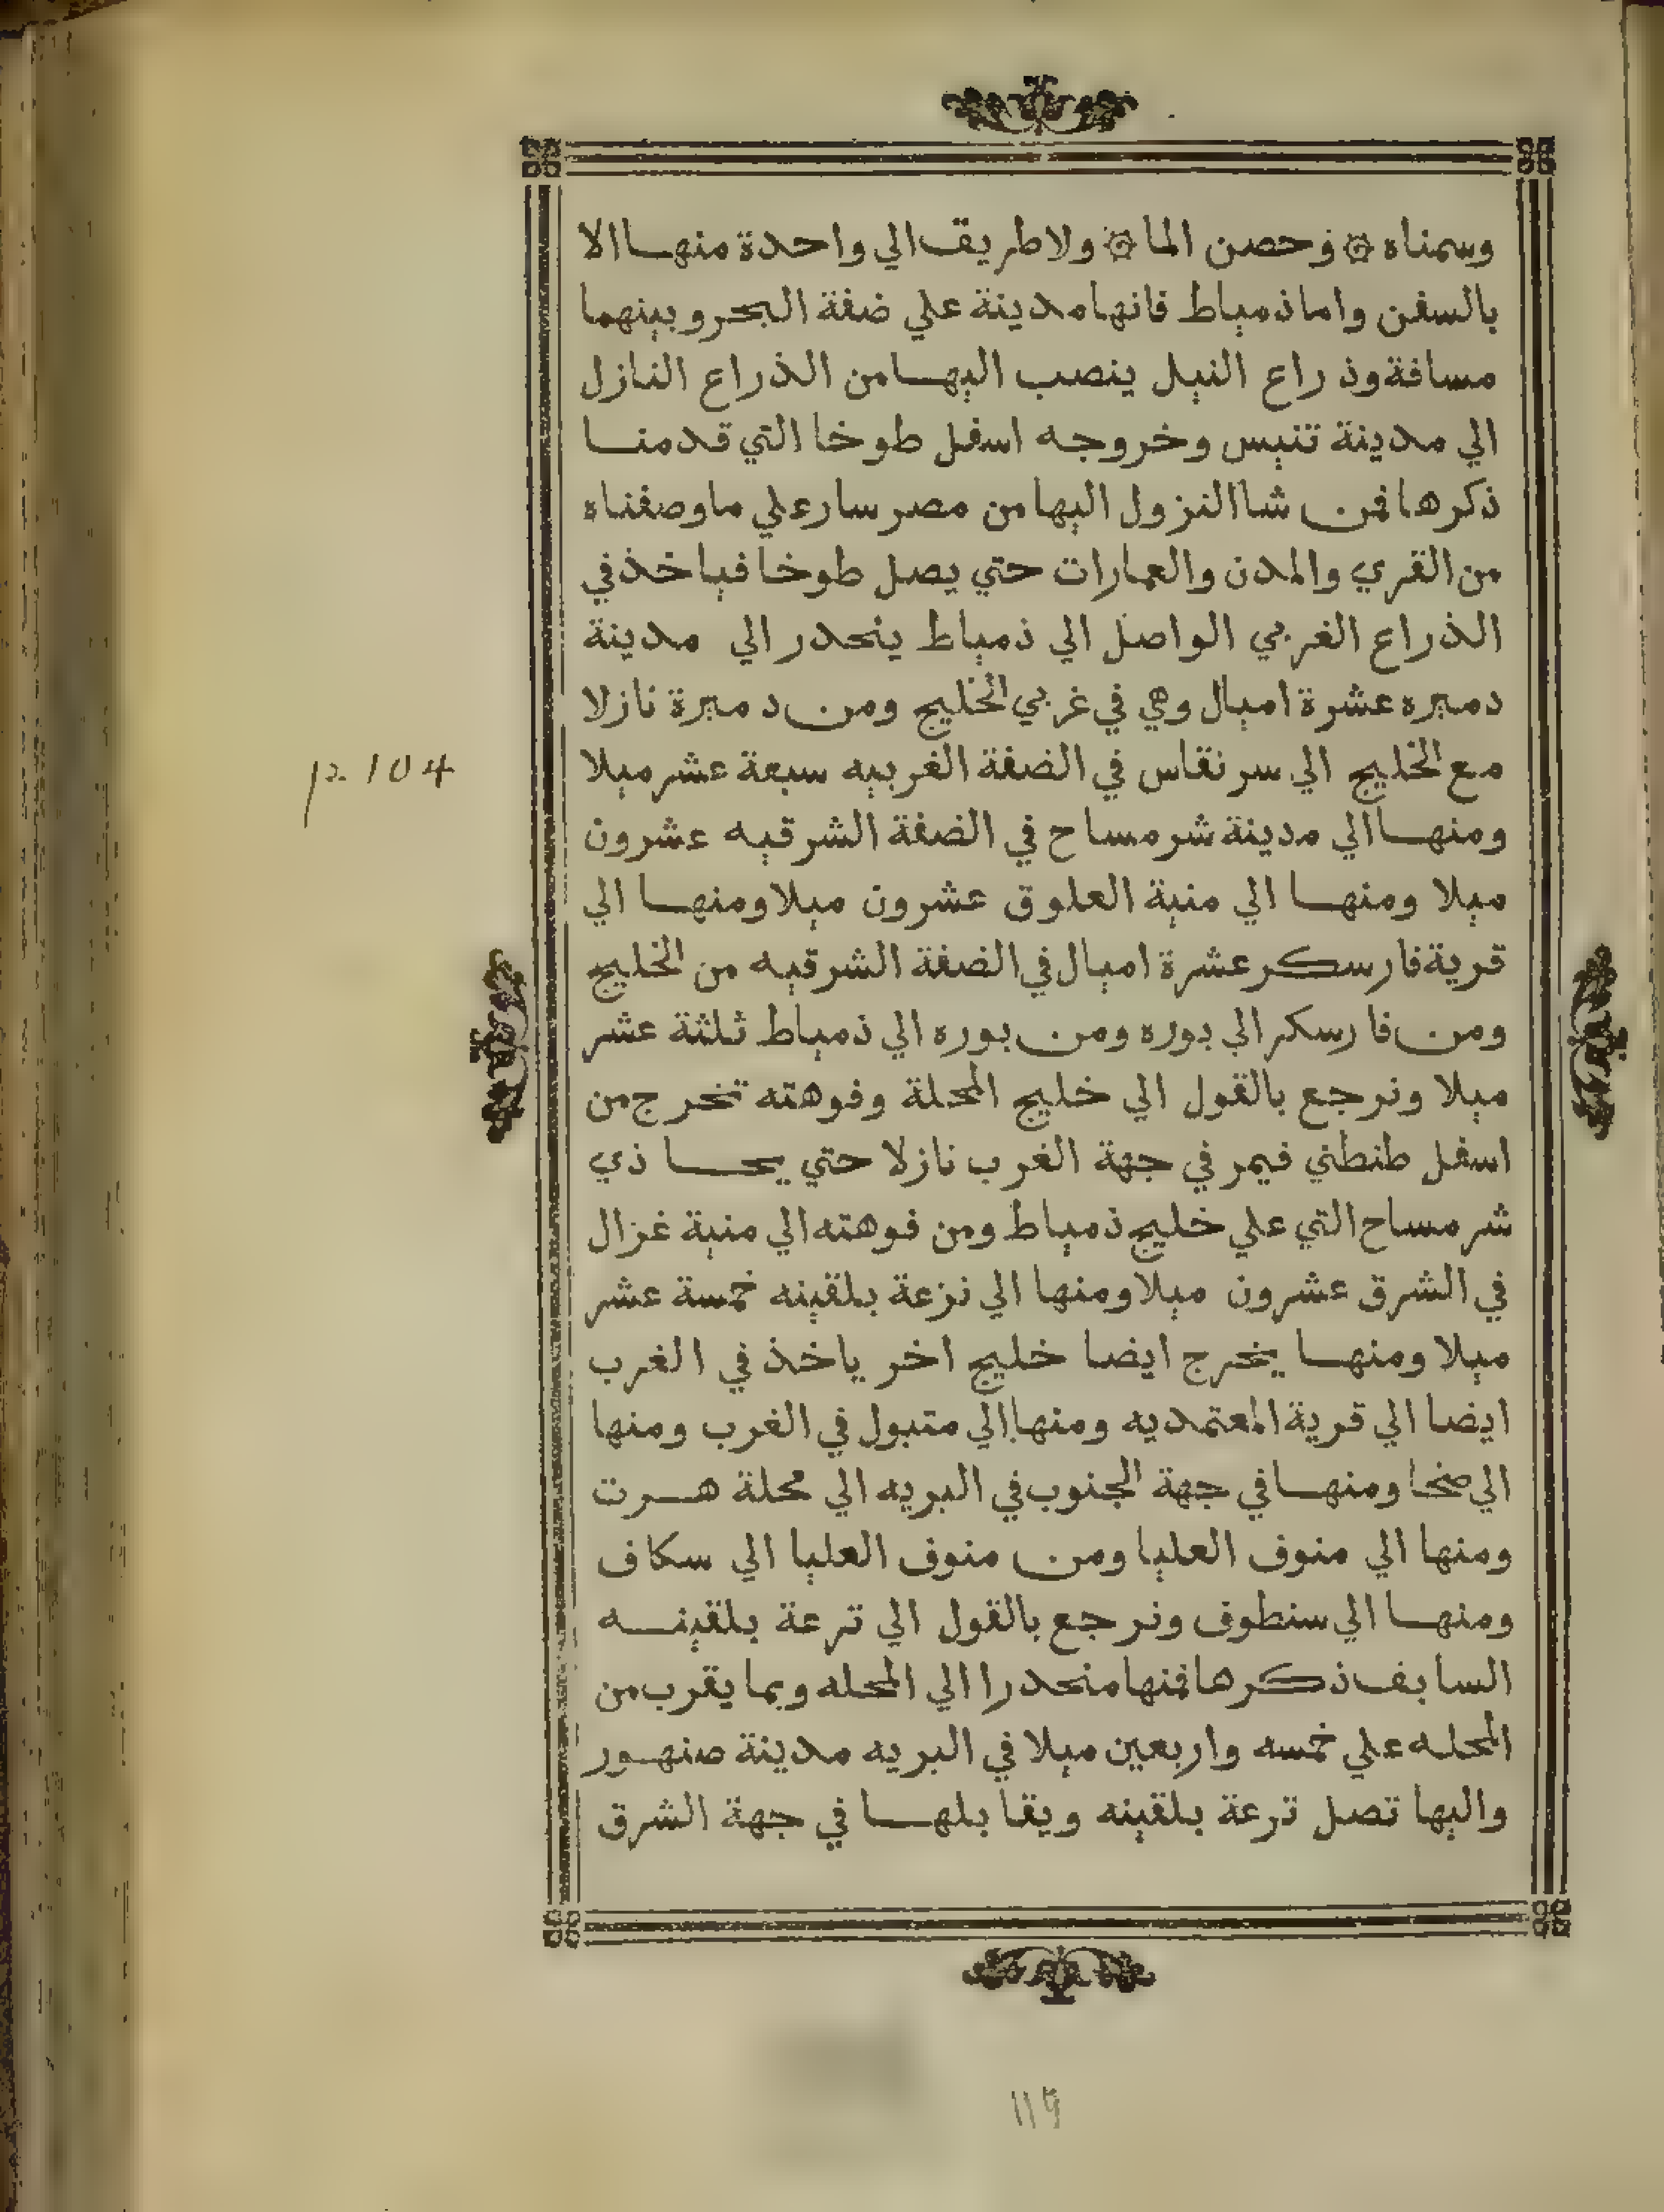 وسمناه ۞ وحصن الما ۞ ولا طريق الي واحدة منها الا
بالسفن واما ذمياط فانها مدينة علي ضفة البحر وبينهما
مسافة وذراع النيل ينصب اليها من الذراع النازل
الي مدينة تنيس وخروجه اسفل طوخا التي قدمنا
ذكرها فمن شا النزول اليها من مصر سار علي ما وصفناه
من القري والمدن والعمارات حتي يصل طوخا فياخذ في
الذراع الغربي الواصل الي ذمياط ينحدر الي مدينة
دميره عشرة اميال وهي في غربي الخليج ومن دميرة نازلا
مع الخليج الي سرنقاس في الضفة الغربيه سبعة عشر ميلا
ومنها الي مدينة شرمساح في الضفة الشرقيه عشرون
ميلا ومنها الي منية العلوق عشرون ميلا ومنها الي
قرية فارسكر عشرة اميال في الضفة الشرقيه من الخليج
ومن فارسكر الي بوره ومن بوره الي ذمياط ثلثة عشر
ميلا ونرجع بالقول الي خليج المحلة وفوهته تخرج من
اسفل طنطني فيمر في جهة الغرب نازلا حتي يحاذي
شرمساح التي علي خليج ذمياط ومن فوهته الي منية غزال
في الشرق عشرون ميلا ومنها الي نزعة بلقينه خمسة عشر
ميلا ومنها يخرج ايضا خليج اخر ياخذ في الغرب
ايضا الي قرية المعتمديه ومنها الي متبول في الغرب ومنها
الي صخا ومنها في جهة الجنوب في البريه الي محلة هرت
ومنها الي منوف العليا ومن منوف العليا الي سكاف
ومنها الي سنطوف ونرجع بالقول الي ترعة بلقينه
السابق ذكرها فمنها منحدرا الي المحله وبما يقرب من
المحله علي خمسه واربعين ميلا في البريه مدينة صنهور
واليها تصل ترعة بلقينه ويقابلها في جهة الشرق
p. 104